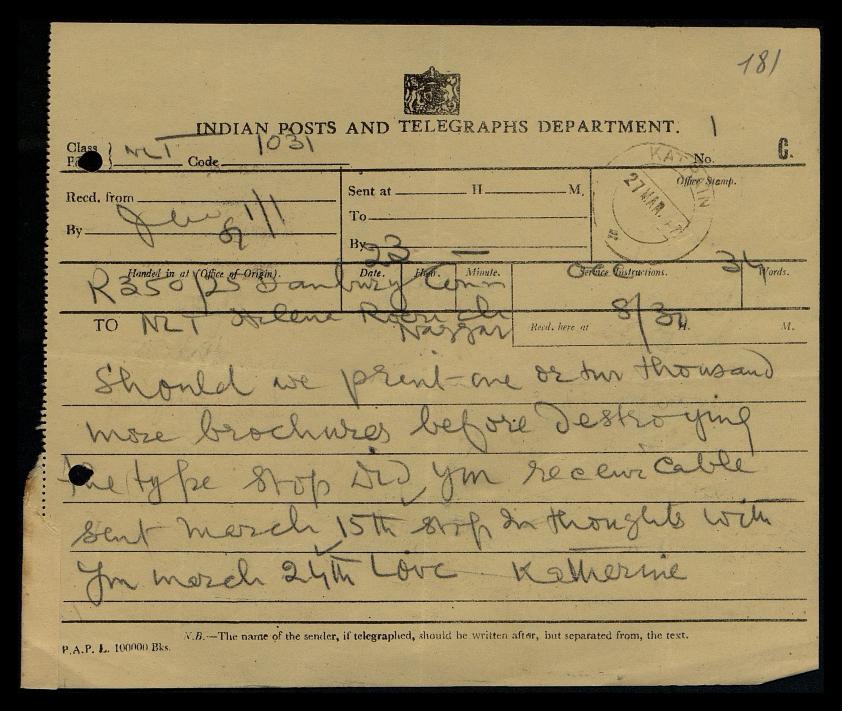 181
INDIAN POSTS AND TELEGRAPHS DEPARTMENT.
1
Class
NLT Code 1031
No.
C.
Office Stamp.
KATRAIN
27 MAR.
Recd. from
By
Sent at H M.
To
By
23
Handed in at (Office of Origin). Date. Hour. Minute. Service Instructions. Words.
R350/25 Danbury Conn 34
TO NLT Helene Roerich
Naggar
Recd. here at H. M.
8/30
Should we print one or two thousand
more brochures before destroying
the type stop Did you receive cable
sent march 15th stop In thoughts with
you march 24th Love Katherine
N.B.—The name of the sender, if telegraphed, should be written after, but separated from, the text.
P.A.P. L. 100000 Bks.